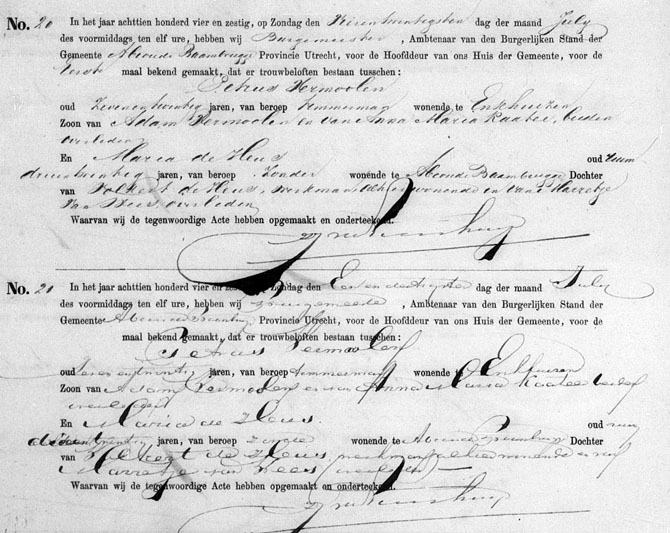 No. 20 In het jaar achttien honderd vier en zestig, op Zondag den dag der maand July
des voormiddags ten elf ure, hebben wij Burgemeester, Ambtenaar van den Burgerlijken Stand der
Gemeente Abcoude Baambrugge Provincie Utrecht, voor de Hoofddeur van ons Huis der Gemeente, voor de
Eerste maal bekend gemaakt, dat er trouwbeloften bestaan tusschen:
Petrus Vermoolen
oud Zevenentwintig jaren, van beroep Timmerman wonende te Enkhuizen
Zoon van Adam Vermoolen en van Anna Maria Raatee, beiden
overleden
En Maria de Heus oud
drieentwintig jaren, van beroep Zonder wonende te Abcoude Baambrugge Dochter
van Volkert de Heus, werkman wonende en van Marretje
van Nees, overleden
Waarvan wij de tegenwoordige Acte hebben opgemaakt en onderteekend.
No. 21 In het jaar achttien honderd vier en zestig, op Zondag den Een en dertigsten dag der maand July
des voormiddags ten elf ure, hebben wij Burgemeester, Ambtenaar van den Burgerlijken Stand der
Gemeente Provincie Utrecht, voor de Hoofddeur van ons Huis der Gemeente, voor de
maal bekend gemaakt, dat er trouwbeloften bestaan tusschen:
Petrus Vermoolen
oud jaren, van beroep timmerman wonende te Enkhuizen
Zoon van Adam Vermoolen en van Anna Maria Raatee
En Maria de Heus. oud
jaren, van beroep zonder wonende te Dochter
van Volkert de Heus, wonende en van
Marretje van Nees (overleden)
Waarvan wij de tegenwoordige Acte hebben opgemaakt en onderteekend.